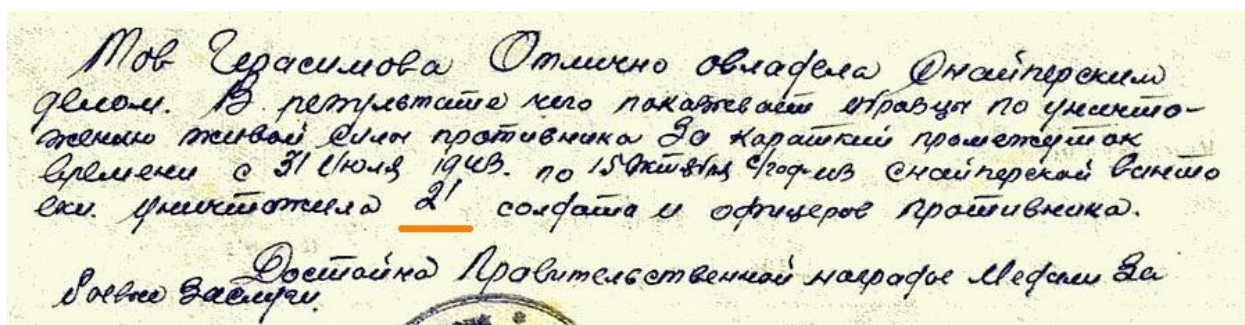 Тов Герасимова Отлично овладела Снайперским
делом. В результате чего показывает образцы по уничто-
жению живой силы противника За кароткий промежуток
времени с 31 Июля 1943. по 15 Октября с/год из снайперской винто
вки. Уничтожила 21 солдата и офицеров противника.
Достойна Правительственной награды Медали За
боевые Заслуги.